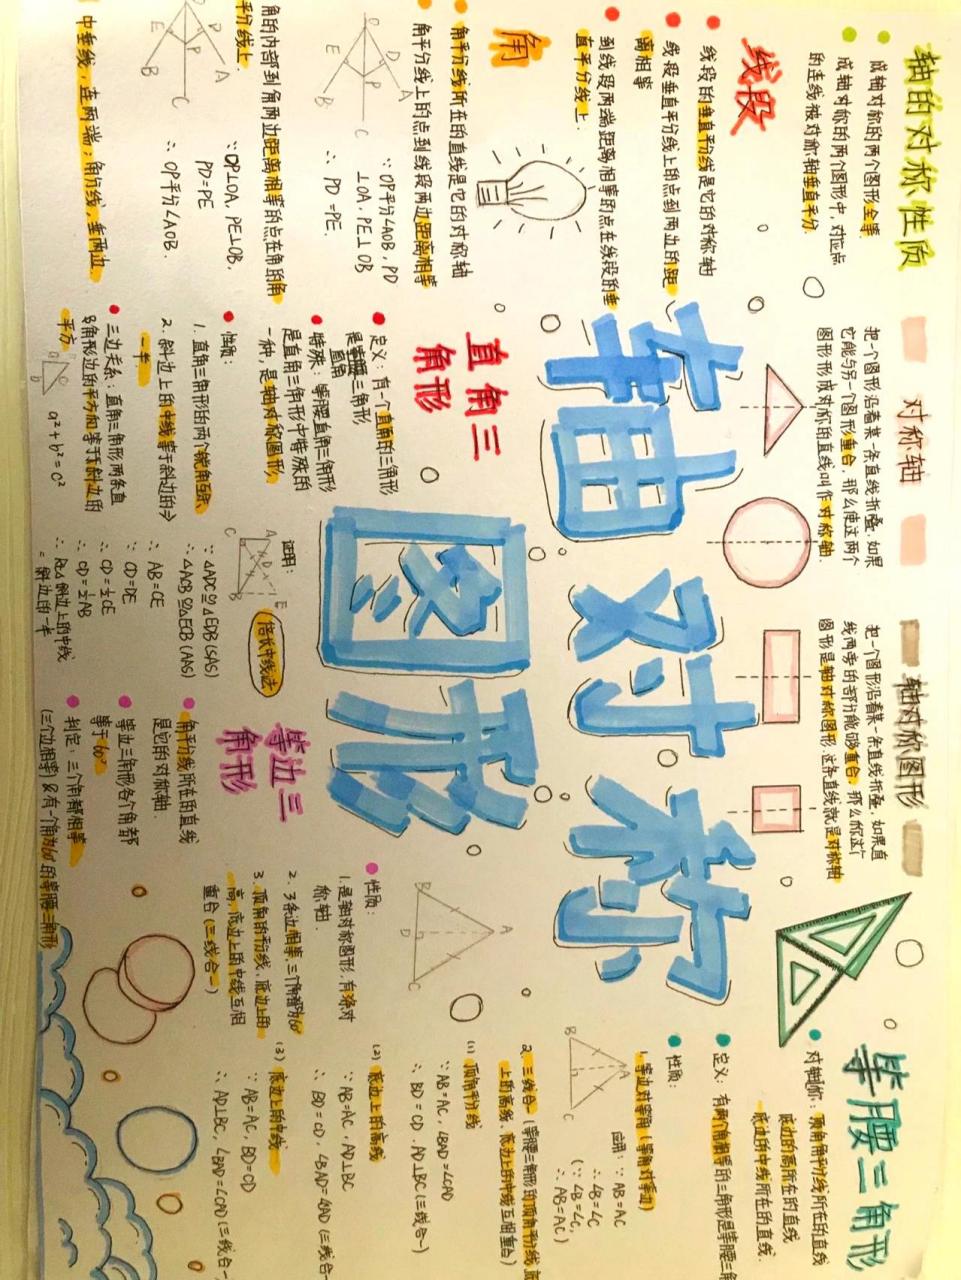 轴对称
图形
轴的对称性质
成轴对称的两个图形全等
成轴对称的两个图形中,对应点
的连线被对称轴垂直平分
对称轴
把一个图形沿着某一条直线折叠,如果
它能与另一个图形重合,那么使这两个
图形形成对称的直线叫作对称轴
轴对称图形
把一个图形沿着某一条直线折叠,如果直
线两旁的部分能够重合,那么称这个
图形是轴对称图形,这条直线就是对称轴
线段
线段的垂直平分线是它的对称轴
线段垂直平分线上的点到两边的距
离相等
到线段两端距离相等的点在线段的垂
直平分线上.
角
角平分线所在的直线是它的对称轴
角平分线上的点到线段两边距离相等
O
E
D
P
B
A
C
∵OP平分∠AOB,PD
⊥OA,PE⊥OB
∴PD=PE.
角的内部到角两边距离相等的点在角的角
平分线上.
E
D
P
B
A
C
∵OP⊥OA,PE⊥OB,
PD=PE
∴OP平分∠AOB.
中垂线,连两端;角分线,垂两边
直角三
角形
定义:有一个直角的三角形
直角
三角形
特殊:等腰直角三角形
是直角三角形中特殊的
一种,是轴对称图形.
性质:
1.直角三角形的两个锐角互余
2.斜边上的中线等于斜边的
一半
三边关系:直角三角形两条直
角形边的平方和等于斜边的
平方
a²+b²=c²
证明:
倍长中线法
A
C
D
B
E
∵△ADC≌△EDB(SAS)
∴△ACB≌△ECB(AAS)
∴AB=CE
∵CD=DE
∴CD=½CE
∴CD=½AB
∴Rt△斜边上的中线
=斜边的一半
等边三
角形
角平分线所在的直线
是它的对称轴.
等边三角形各个角都
等于60°
判定:三个角都相等
(三个边相等)&有一个角为60°的等腰三角形
性质:
1.是轴对称图形,有3条对
称轴.
2.3条边相等,三个角都为60°
3.顶角的平分线、底边上的
高、底边上的中线互相
重合(三线合一)
A
B
D
C
等腰三角形
对称轴:顶角角平分线所在的直线
底边的高所在的直线
底边的中线所在的直线.
定义:有两个角相等的三角形是等腰三角
性质:
1.等边对等角(等角对等边)
A
B
C
应用:∵AB=AC
∴∠B=∠C
(∵∠B=∠C,
∴AB=AC)
2.三线合一(等腰三角形的顶角平分线,底
上的高线、底边上的中线互相重合)
(1)顶角平分线
∵AB=AC,∠BAD=∠CAD
∴BD=CD.AD⊥BC(三线合一)
(2)底边上的高线
∵AB=AC,AD⊥BC
∴BD=CD,∠BAD=∠CAD(三线合一
(3)底边上的中线
∵AB=AC,BD=CD
∴AD⊥BC,∠BAD=∠CAD(三线合一